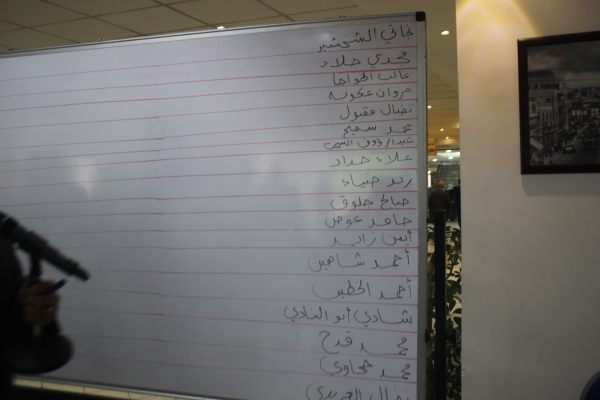 نجاتي الشخشير
مجدي جلاد
غالب الخواجا
مروان عكوبه
نضال مقبول
محمد سميح
علاء حداد
رند ضياء
صالح حلوق
حامد عوض
أيمن زايد
أحمد شاهين
أحمد الخطيب
شادي أبو النادي
محمد قدح
محمد حجاوي
نضال